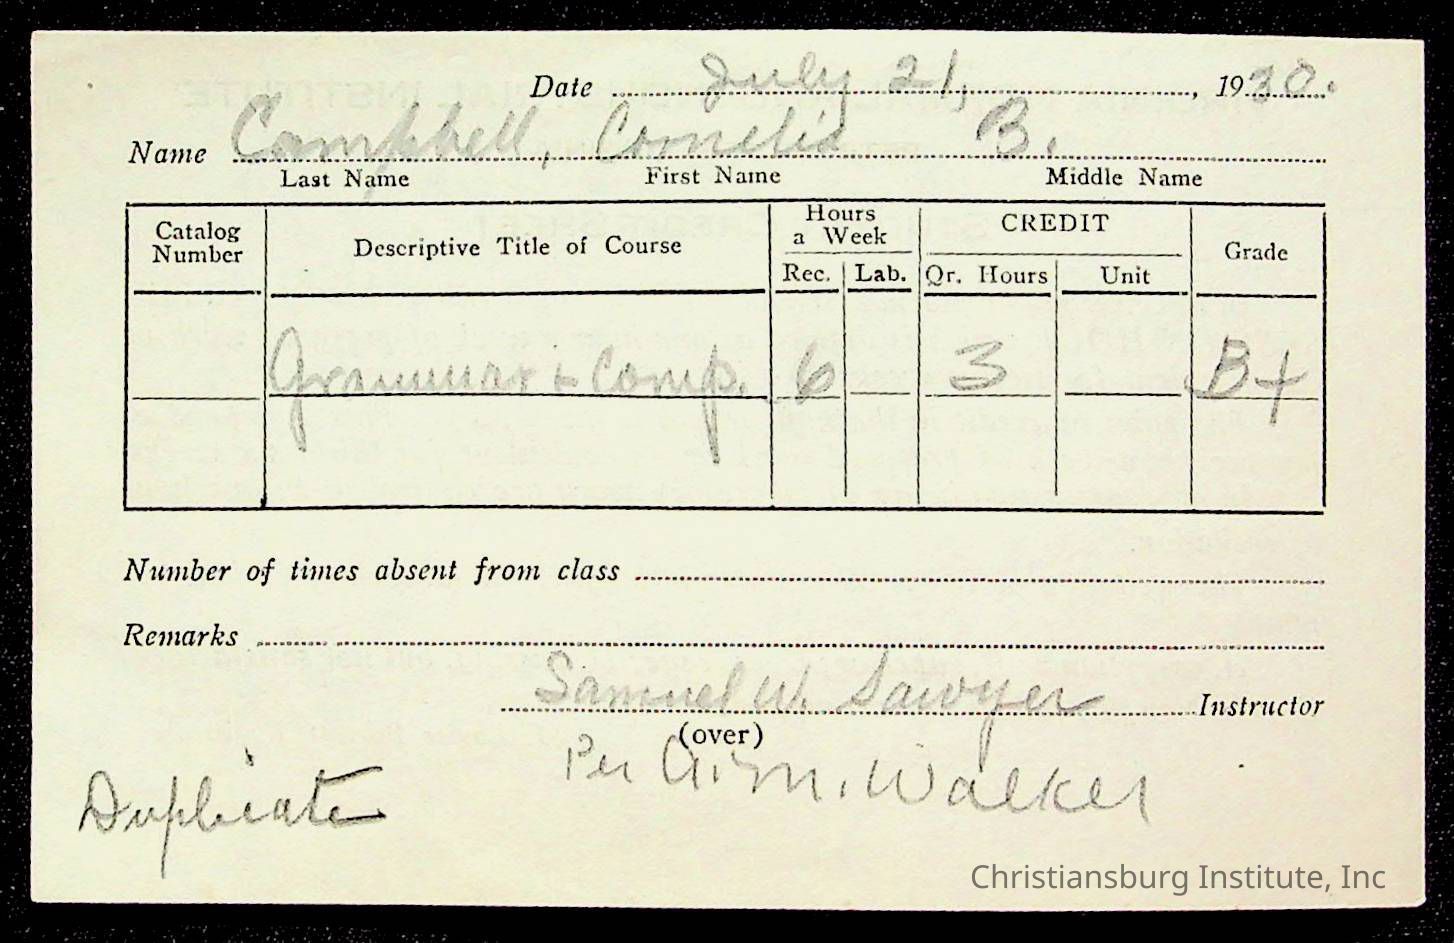 Date July 21, 1930.
Name Campbell, Cornelia B.
Last Name First Name Middle Name
Catalog Number Descriptive Title of Course Hours a Week CREDIT Grade
Rec. Lab. Qr. Hours Unit
Grammar + Comp. 6 3 B+
Number of times absent from class
Remarks
Samuel W. Sawyer Instructor
(over)
Per M. Walker
Duplicate
Christiansburg Institute, Inc